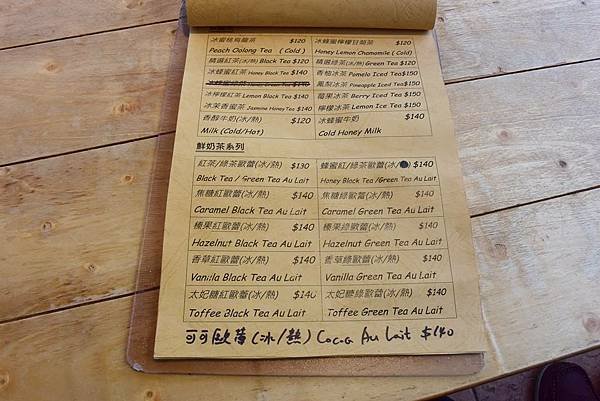 冰蜜桃烏龍茶 $120
Peach Oolong Tea ( Cold )
精選紅茶(冰/熱) Black Tea $120
冰蜂蜜紅茶 Honey Black Tea $140
冰檸檬紅茶 Lemon Black Tea $140
冰茉香蜜茶 Jasmine Honey Tea $140
香醇牛奶(冰/熱) $120
Milk (Cold/Hot)
冰蜂蜜檸檬甘菊茶 $120
Honey Lemon Chamomile ( Cold)
精選綠茶(冰/熱) Green Tea $120
香柚冰茶 Pomelo Iced Tea $150
鳳梨冰茶 Pineapple Iced Tea $150
莓果冰茶 Berry Iced Tea $150
檸檬冰茶 Lemon Ice Tea $150
冰蜂蜜牛奶 $140
Cold Honey Milk
鮮奶茶系列
紅茶/綠茶歐蕾(冰/熱) $130
Black Tea / Green Tea Au Lait
焦糖紅歐蕾(冰/熱) $140
Caramel Black Tea Au Lait
榛果紅歐蕾(冰/熱) $140
Hazelnut Black Tea Au Lait
香草紅歐蕾(冰/熱) $140
Vanilla Black Tea Au Lait
太妃糖紅歐蕾(冰/熱) $140
Toffee Black Tea Au Lait
蜂蜜紅/綠茶歐蕾(冰/) $140
Honey Black Tea /Green Tea Au Lait
焦糖綠歐蕾(冰/熱) $140
Caramel Green Tea Au Lait
榛果綠歐蕾(冰/熱) $140
Hazelnut Green Tea Au Lait
香草綠歐蕾(冰/熱) $140
Vanilla Green Tea Au Lait
太妃糖綠歐蕾(冰/熱) $140
Toffee Green Tea Au Lait
可可歐蕾(冰/熱) Cocoa Au Lait $140